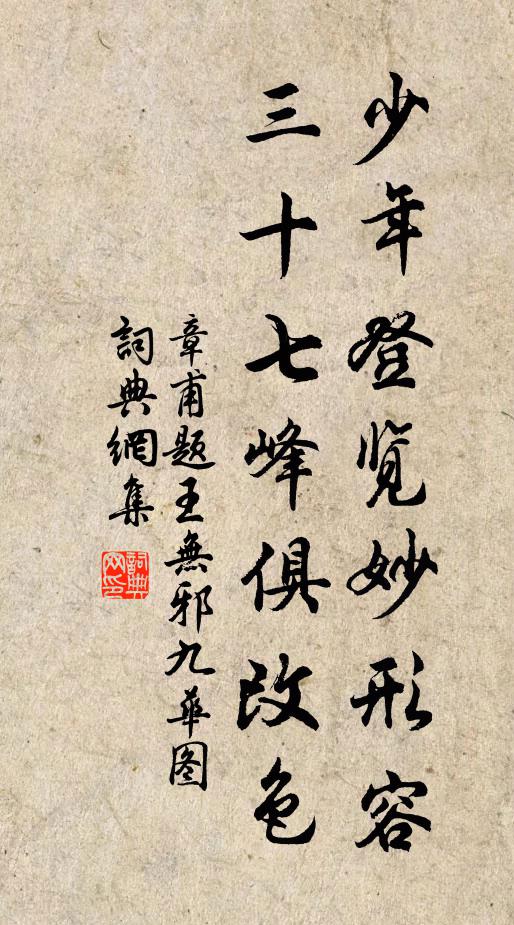 少年登览妙形容
三十七峰俱改色
章甫题王無邪九華图
詞典網集
詞典网印